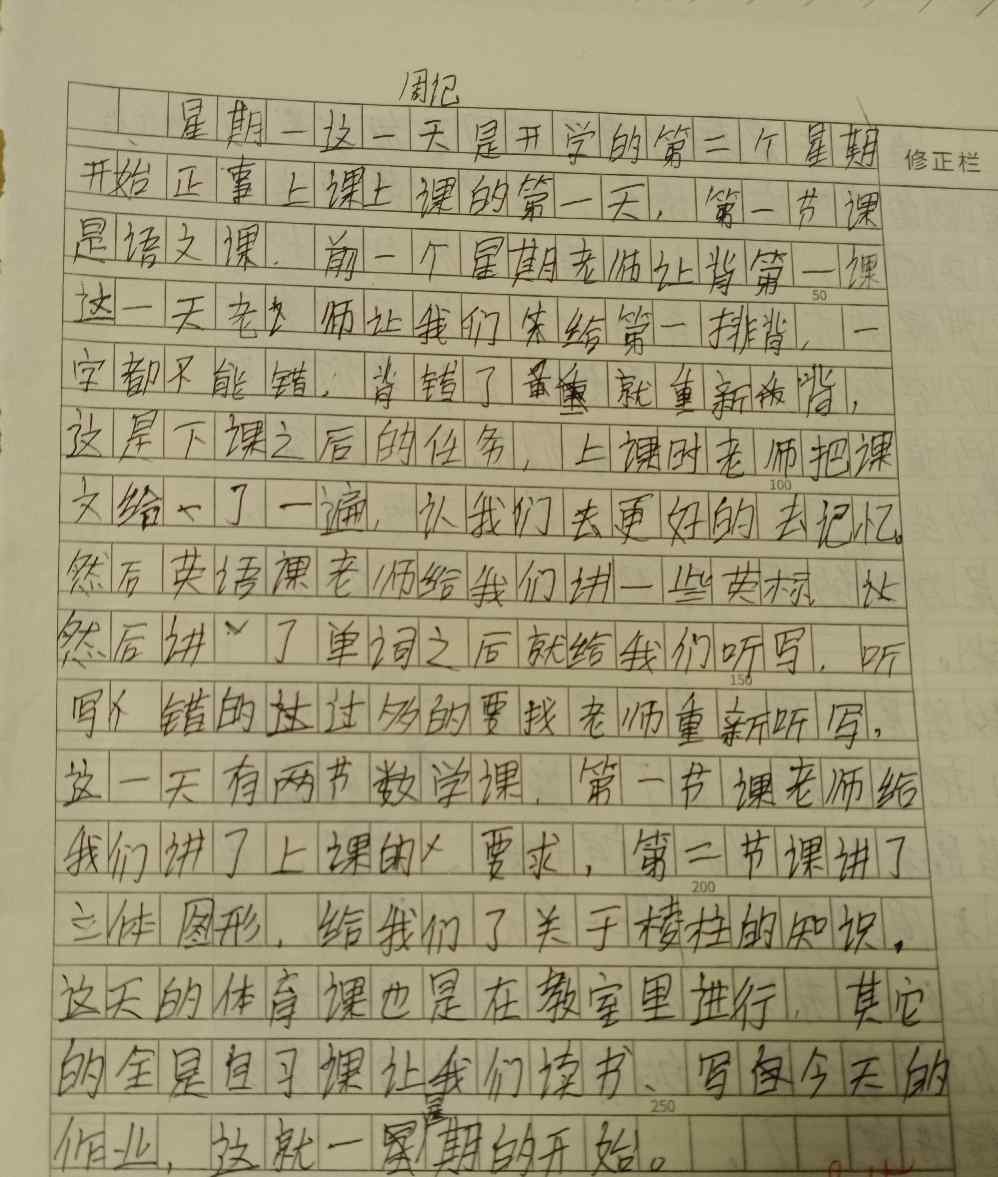 周记
星期一这一天是开学的第二个星期
修正栏
开始正事上课上课的第一天，第一节课
是语文课．前一个星期老师让背第一课
50
这一天老师让我们来给第一排背，一
字都不能错．背错了就重新背，
这是下课之后的任务，上课时老师把课
100
文给了一遍，认我们去更好的去记忆。
然后英语课老师给我们讲一些英标
然后讲了单词之后就给我们听写．听
150
写错的过多的要找老师重新听写，
这一天有两节数学课．第一节课老师给
我们讲了上课的要求，第二节课讲了
200
立体图形，给我们了关于棱柱的知识．
这天的体育课也是在教室里进行．其它
的全是自习课让我们读书、写今天的
250
作业，这就一星期的开始。